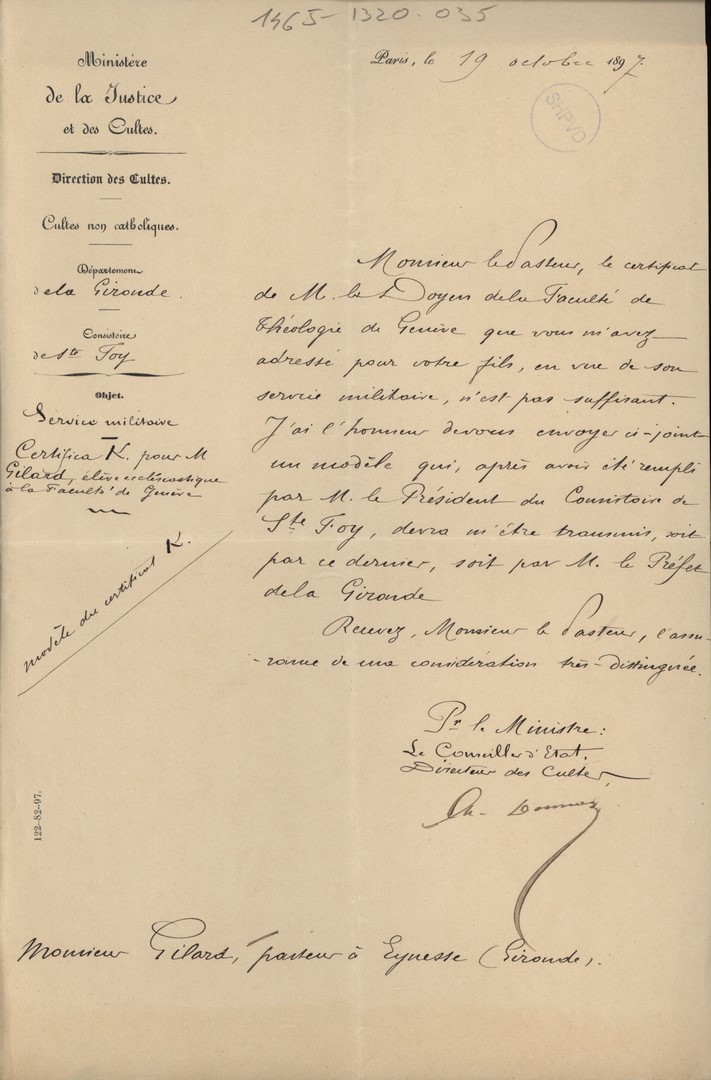 1465-1320-035
Ministère
de la Justice
et des Cultes.
Direction des Cultes.
Cultes non catholiques.
Département
de la Gironde.
Consistoire
de Ste Foy
Objet.
Service militaire
Certificat K. pour M
Gilard, élève ecclésiastique
à la Faculté de Genève
modèle du certificat K.
122-82-97.
Paris, le 19 octobre 1897.
SHPVD
Monsieur le Pasteur, le certificat
de M. le Doyen de la Faculté de
Théologie de Genève que vous m'avez
adressé pour votre fils, en vue de son
service militaire, n'est pas suffisant.
J'ai l'honneur de vous envoyer ci-joint
un modèle qui, après avoir été rempli
par M. le Président du Consistoire de
Ste Foy, devra m'être transmis, soit
par ce dernier, soit par M. le Préfet
de la Gironde
Recevez, Monsieur le Pasteur, l'assu-
-rance de ma considération très-distinguée.
Pr le Ministre:
Le Conseiller d'Etat,
Directeur des Cultes,
Ch.
Monsieur Gilard, pasteur à Eynesse (Gironde).